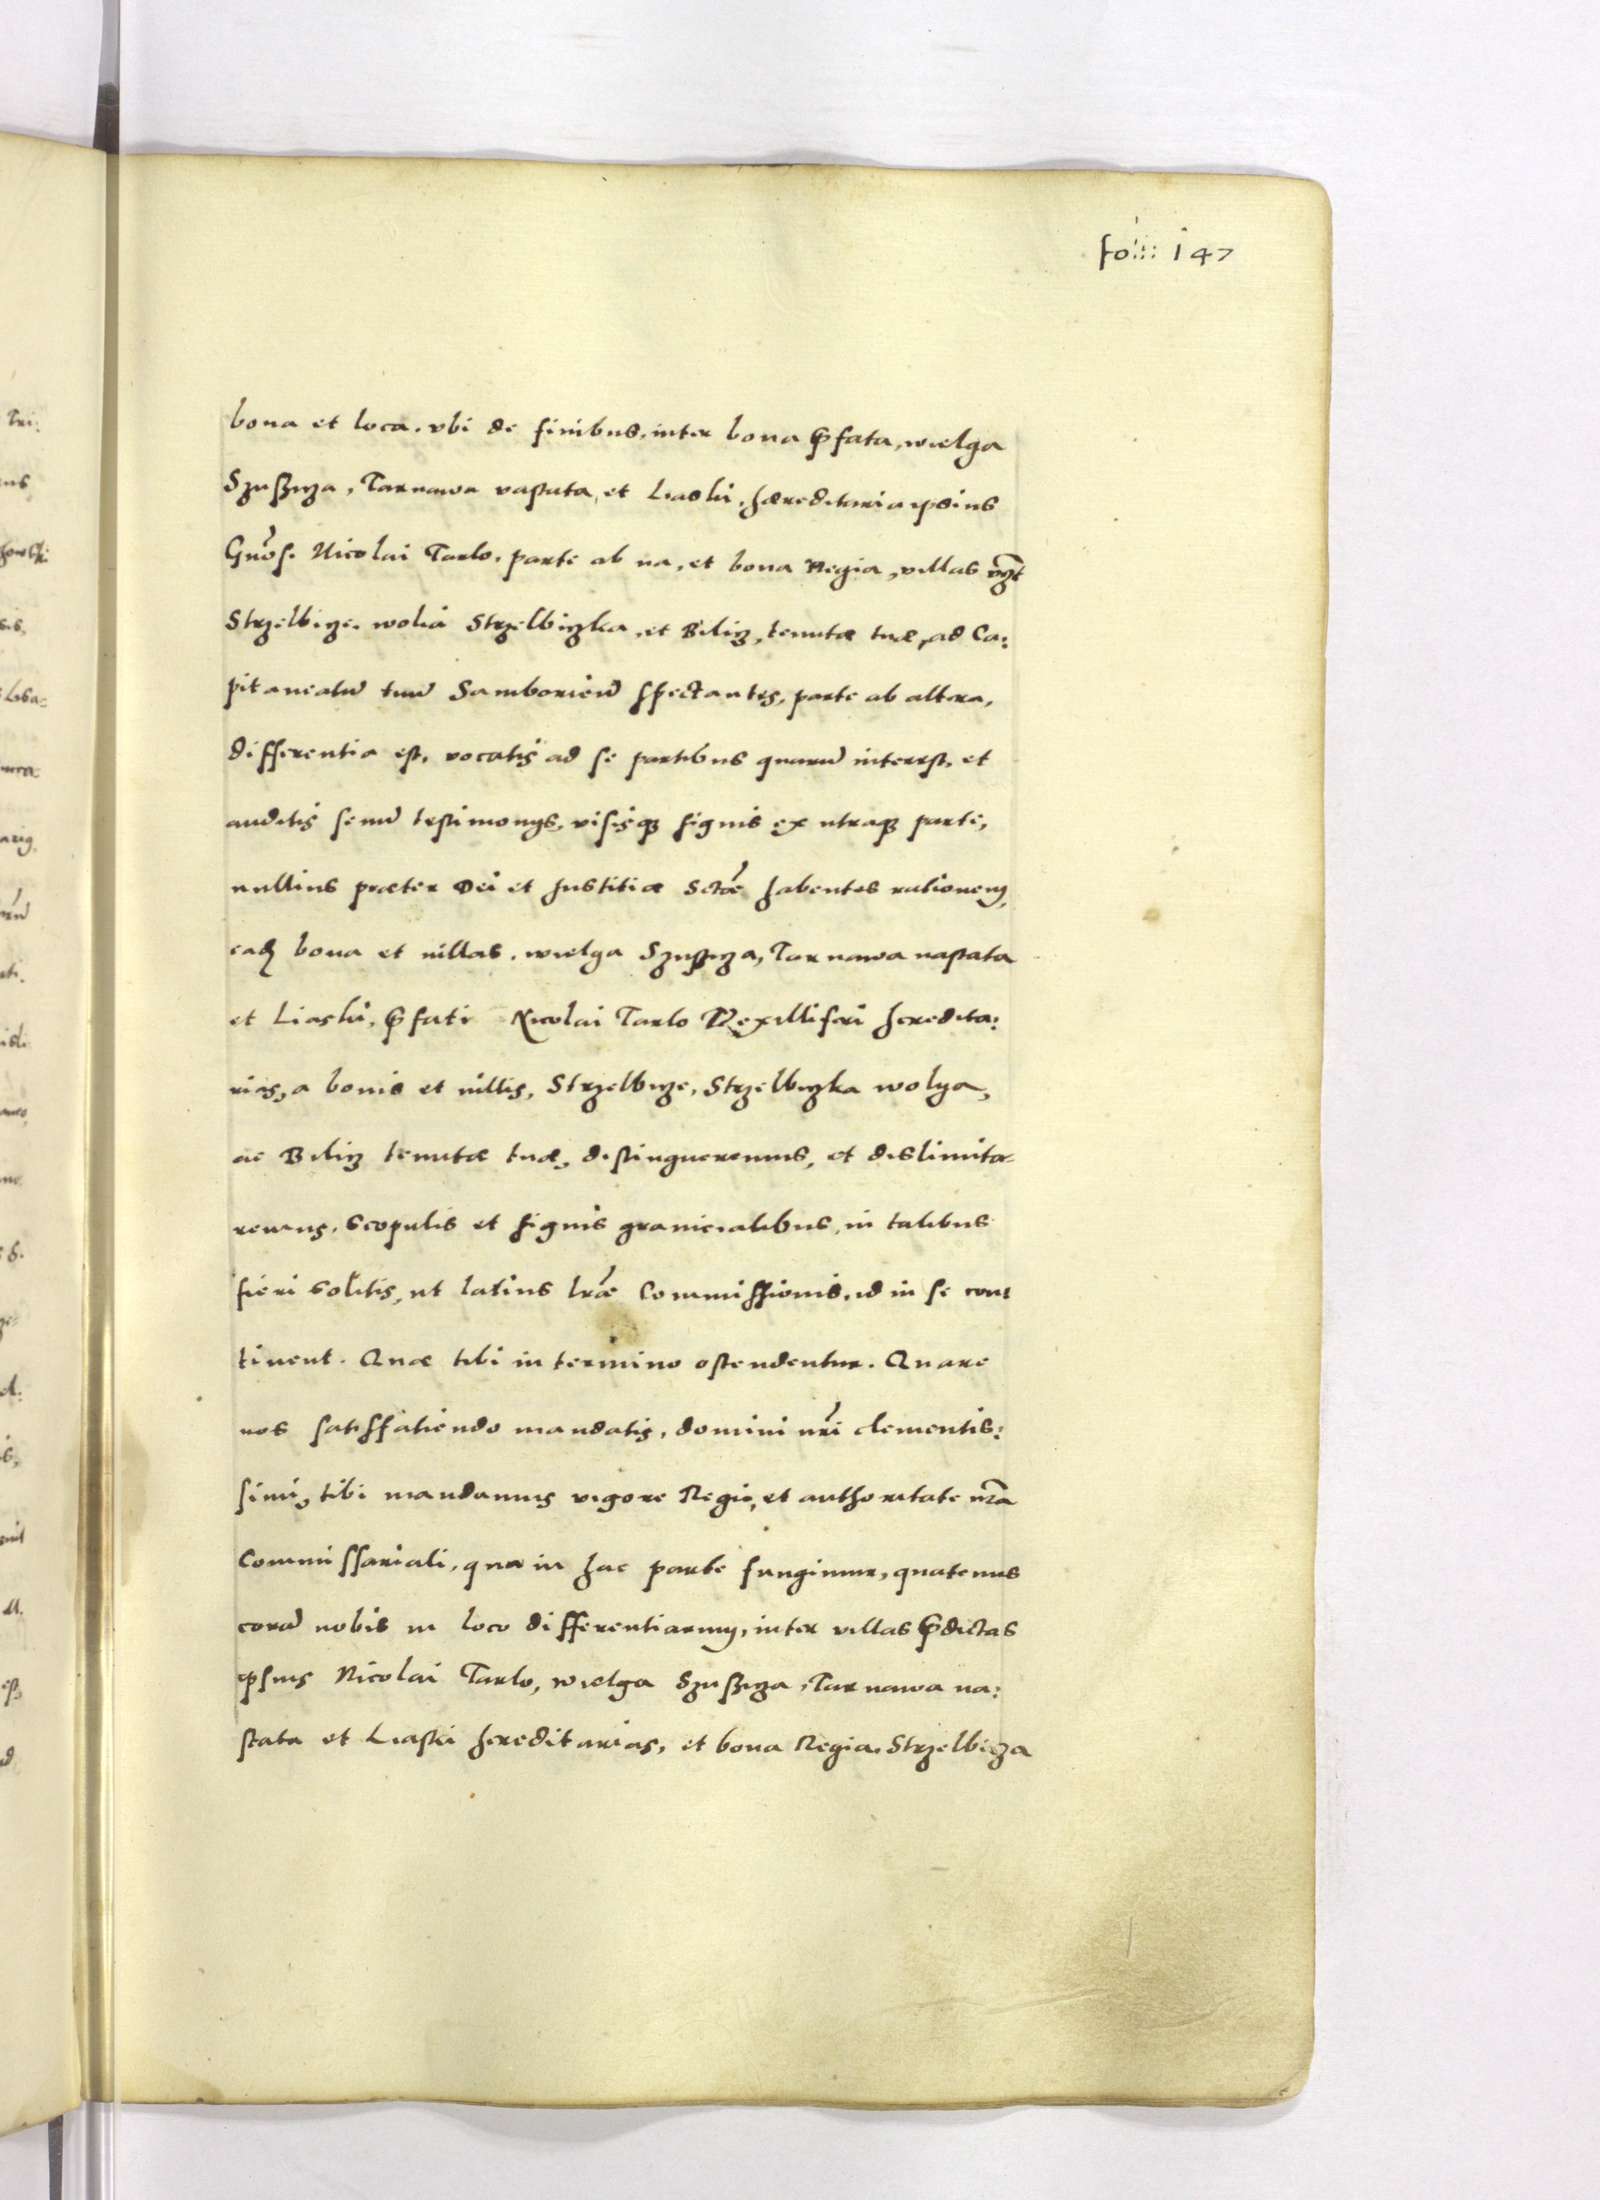 fo: 147
bona et loca. vbi de finibus, inter bona p̃fata, wielga
Szuszyza, Tarnawa vastata, et Liaski, hæreditaria ipsius
Gnosi. Nicolai Tarlo. parte ab na, et bona Regia, villas vz̃t
Strzelbicze. wolia Strzelbiczka, et Bilicz, tenutæ tuæ, ad Ca:
pitaneatũ tuũ Samborieñ spectantes, parte ab altera,
differentia est, vocatis ad se partibus quarũ interest, et
auditis senũ testimonys, visisq₃ signis ex utraq₃ parte,
nullius præter Dei et Justitiæ sctæ̃ habentes rationem,
eadẽ bona et uillas. wielga Szuszyza, Tarnawa uastata
et Liaski, p̃fati Nicolai Tarlo Vexilliferi heredita:
rias, a bonis et uillis, Strzelbicze, Strzelbiczka wolya,
ac Bilicz tenutæ tuæ, distingueremus, et dislimita-
remus, scopulis et signis granicialibus, in talibus
fieri solitis, ut latius lr̃æ Commissionis, id in se con:
tinent. Quæ tibi in termino ostendentur. Quare
nos satisffatiendo mandatis, domini nr̃i clementis:
simi, tibi mandamus vigore Regio, et authoritate nr̃a
Commissariali, qua in hac parte fungimur, quatenus
corã nobis in loco differentiarum, inter villas p̃dictas
ipsius Nicolai Tarlo, wielga Szuszyza, Tarnawa ua:
stata et Liaski hereditarias, et bona Regia. Strzelbicza